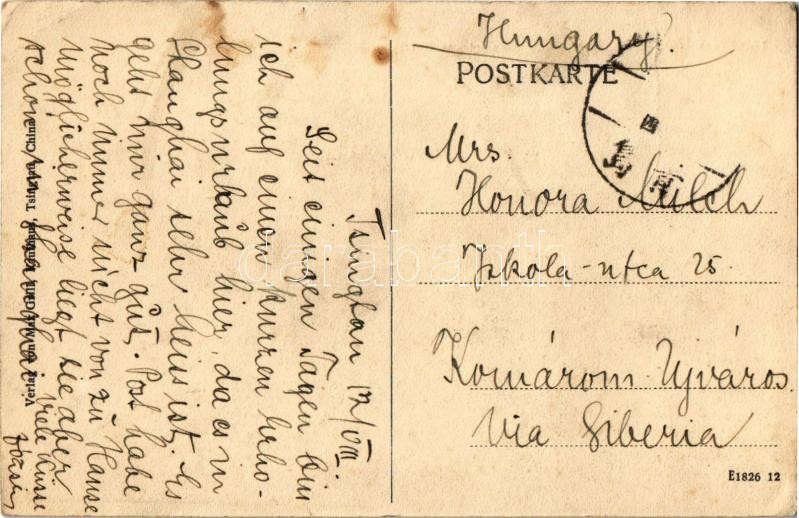 Tsingtau 12/VIII
Seit einigen Tagen bin
ich auf einen kurzen Erho-
lungsurlaub hier, da es in
Shanghai sehr heiss ist. Es
geht mir ganz gut. Post habe
noch immer nicht von zu Hause
möglicherweise liegt sie aber
schon in Shanghai. Viele Küsse
Verlag
Tsingtau, China
Hungary.
POSTKARTE
Mrs.
Honora Milch
Iskola-utca 25.
Komárom Ujváros
Via Siberia
E1826 12
darabanth